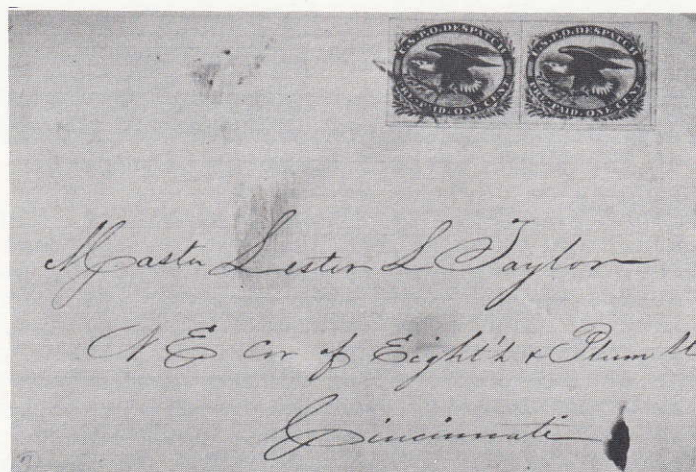 U.S.P.O. DESPATCH
PRE-PAID. ONE CENT.
U.S.P.O. DESPATCH
PRE-PAID. ONE CENT.
Master Lester L Taylor
N E Cor of Eight'h & Plum St
Cincinnati